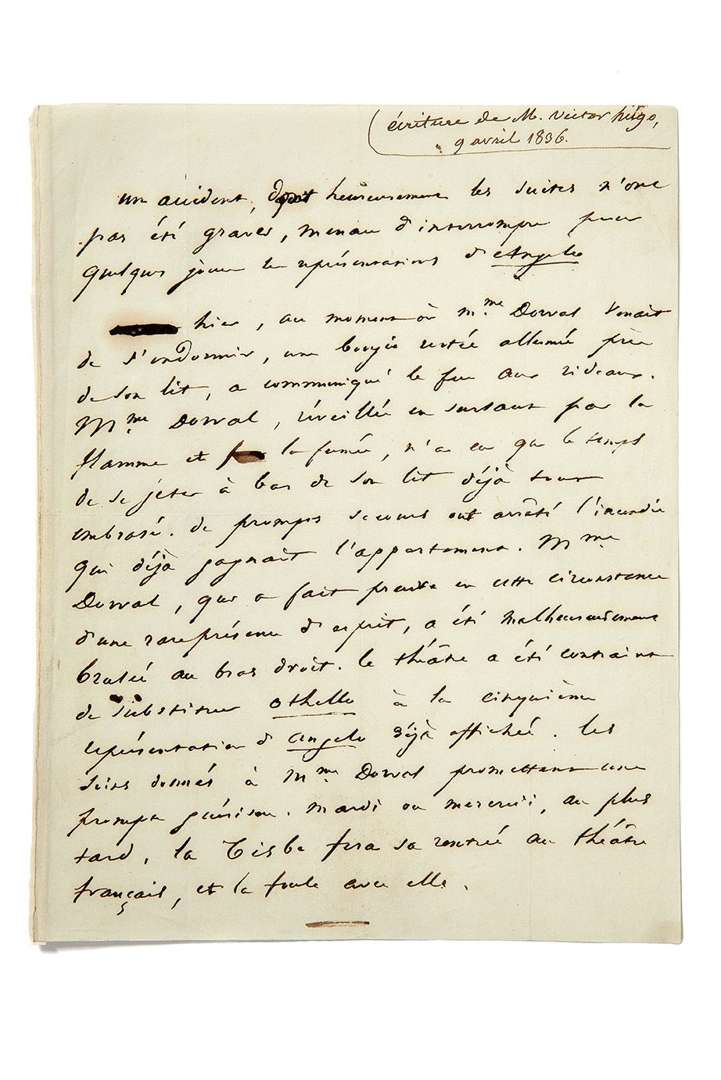 écriture de M. Victor hugo,
9 avril 1836.
un accident, dont heureusement les suites n'ont
pas été graves, vient d'interrompre pour
quelques jours les représentations d'Angelo
hier, au moment où Mme Dorval venait
de s'endormir, une bougie restée allumée près
de son lit, a communiqué le feu aux rideaux.
Mme Dorval, réveillée en sursaut par la
flamme et la fumée, n'a eu que le temps
de se jeter à bas de son lit déjà tout
embrasé. de prompts secours ont arrêté l'incendie
qui déjà gagnait l'appartement. Mme
Dorval, qui a fait preuve en cette circonstance
d'une rare présence d'esprit, a été malheureusement
brûlée au bras droit. le théâtre a été contraint
de substituer othello à la cinquième
représentation d'angelo déjà affichée. les
soins donnés à Mme Dorval promettent une
prompte guérison. mardi ou mercredi, au plus
tard, la Tisbe fera sa rentrée au théâtre
français, et la foule avec elle.